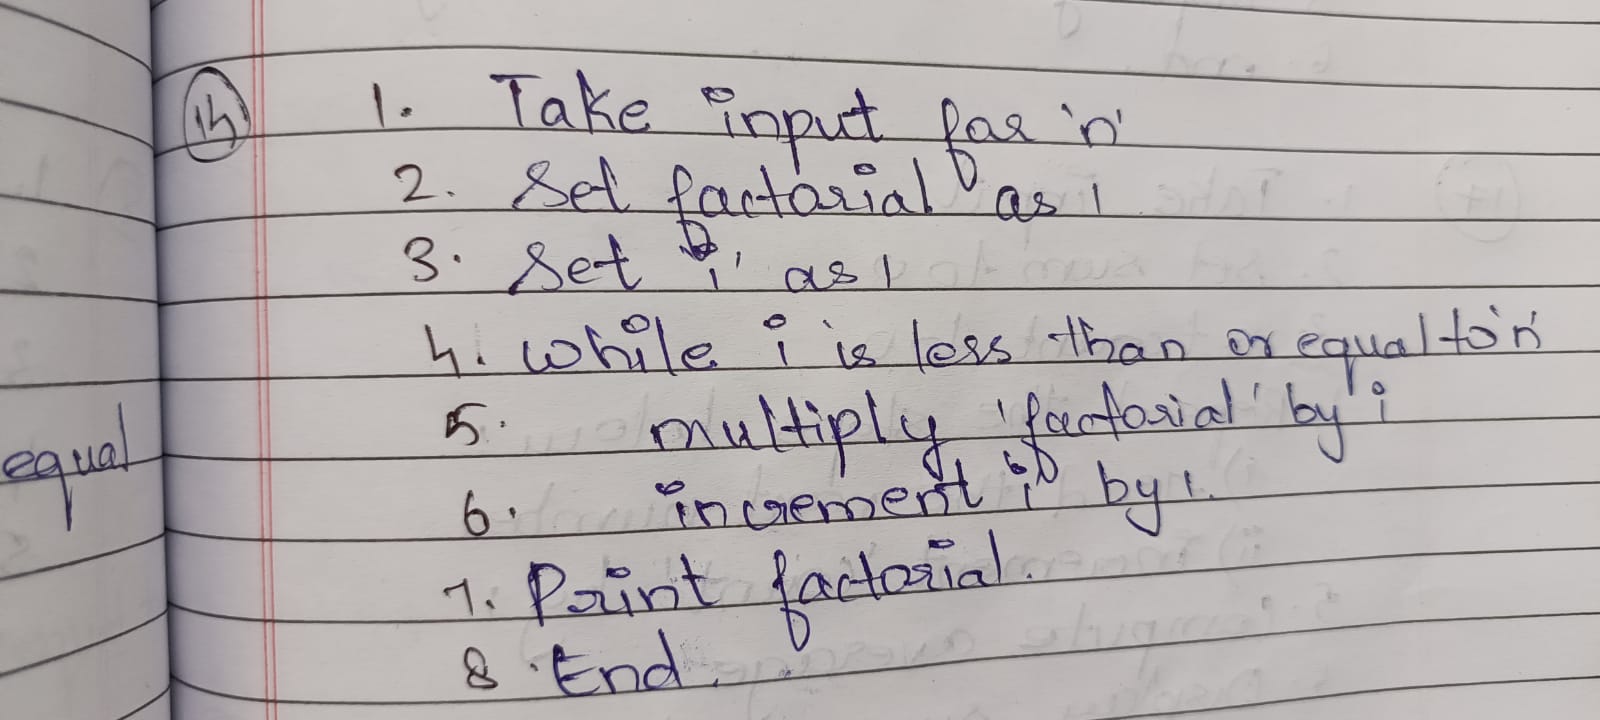 14
1. Take input for 'n'
2. Set factorial as 1
3. Set 'i' as 1
4. while i is less than or equal to 'n'
5. multiply 'factorial' by i
6. increment i by 1.
7. Print factorial.
8. End.
equal